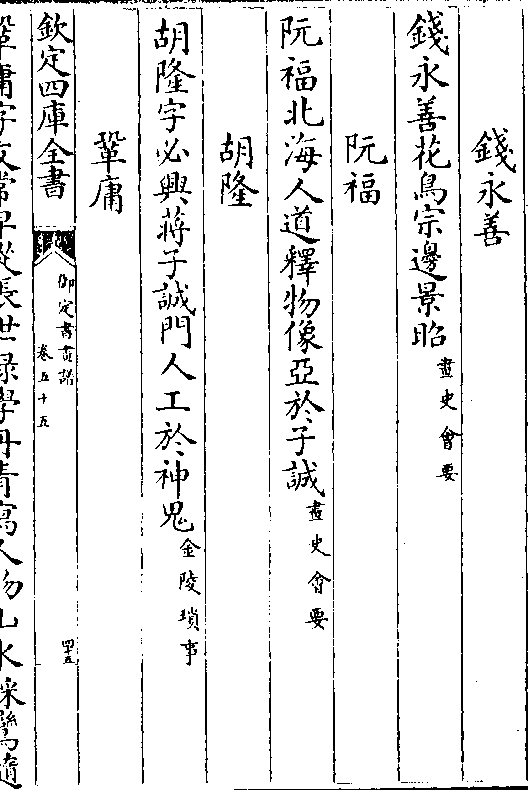 錢永善
錢永善花鳥宗邊景昭畫史會要
阮福
阮福北海人道釋物像亞於子誠畫史會要
胡隆
胡隆字必興蔣子誠門人工於神鬼金陵瑣事
鞏庸
欽定四庫全書
御定書畫譜
卷五十五
四十五
鞏庸字文常早從長世祿學丹青寫人物山水